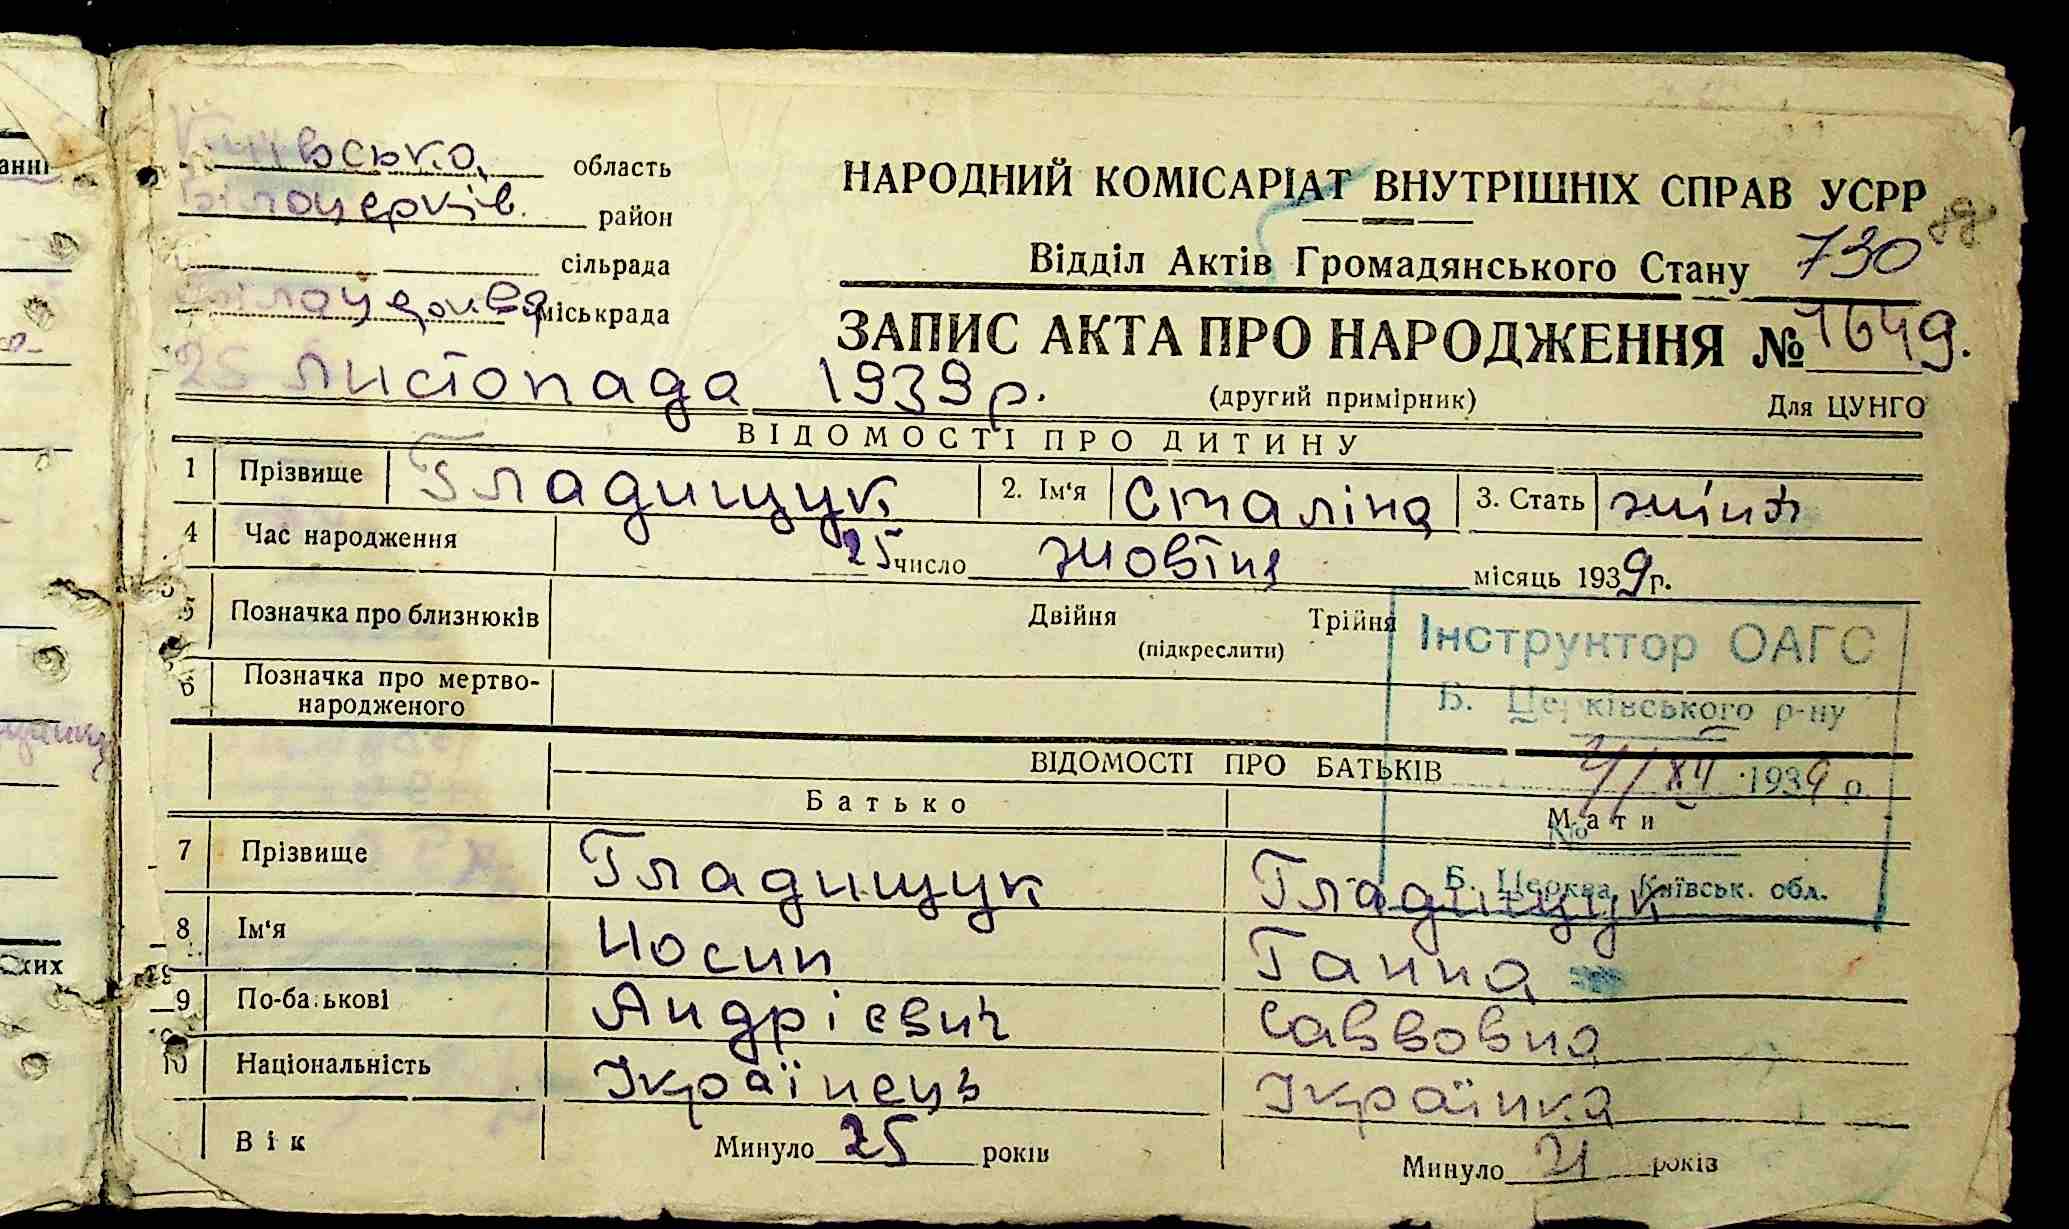 Київська область
Білоцерків. район
сільрада
Білоцерків. міськрада
НАРОДНИЙ КОМІСАРІАТ ВНУТРІШНІХ СПРАВ УСРР
Відділ Актів Громадянського Стану 730
ЗАПИС АКТА ПРО НАРОДЖЕННЯ № 1649.
25 листопада 1939 р. (другий примірник) Для ЦУНГО
ВІДОМОСТІ ПРО ДИТИНУ
1 Прізвище Гладищук 2. Ім'я Сталіна 3. Стать жіноч
4 Час народження 25 число жовтня місяць 1939 р.
5 Позначка про близнюків Двійня Трійня
(підкреслити)
6 Позначка про мертво-
народженого
Інструктор ОАГС
Б. Церківського р-ну
1939 р.
№
Б. Церква, Київськ. обл.
ВІДОМОСТІ ПРО БАТЬКІВ
Батько Мати
7 Прізвище Гладищук Гладищук
8 Ім'я Йосип Ганна
9 По-батькові Андрієвич Саввовна
10 Національність Українець Українка
Вік Минуло 25 років Минуло 21 років